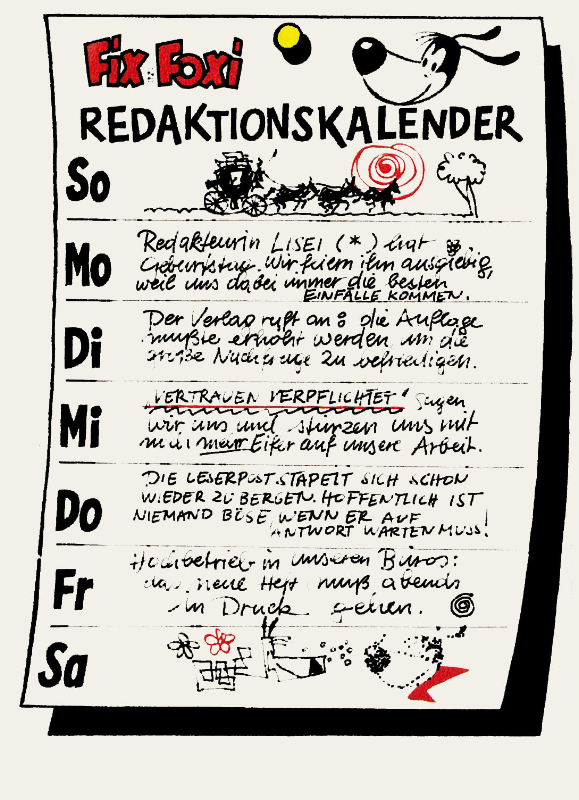 Fix und Foxi
REDAKTIONSKALENDER
So
Mo
Redakteurin LISEI (*) hat
Geburtstag. Wir feiern ihn ausgiebig,
weil uns dabei immer die besten
EINFÄLLE KOMMEN.
Di
Der Verlag ruft an: die Auflage
mußte erhöht werden, um die
große Nachfrage zu befriedigen.
Mi
"VERTRAUEN VERPFLICHTET" sagen
wir uns und stürzen uns mit
Eifer auf unsere Arbeit.
Do
DIE LESERPOST STAPELT SICH SCHON
WIEDER ZU BERGEN. HOFFENTLICH IST
NIEMAND BÖSE, WENN ER AUF
ANTWORT WARTEN MUSS!
Fr
Hochbetrieb in unseren Büros:
das neue Heft muß abends
in Druck gehen.
Sa